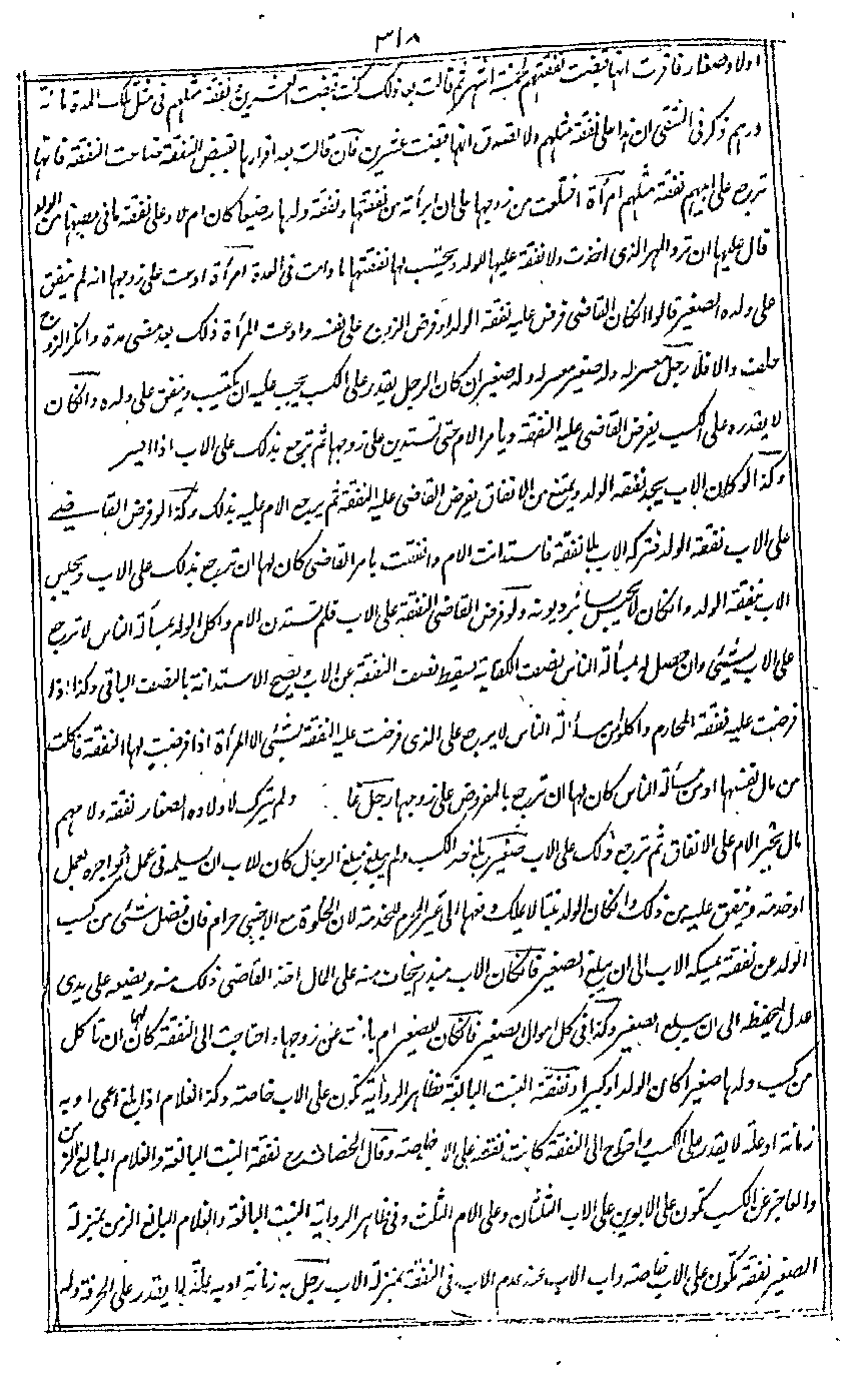 ٣١٨
اولاد صغار فاقرت انها قبضت نفقتهم لخمسة اشهر ثم قالت بعد ذلك كنت قبضت العشرين نفقة مثلهم فى مثل تلك المدة مائة
درهم ذكر فى المنتقى ان هذا على نفقة مثلهم ولا تصدق انها قبضت عشرين فان قالت بعد اقرارها بقبض النفقة ضاعت النفقة فانها
ترجع على ابيهم نفقة مثلهم امرأة اختلعت من زوجها على ان ابرأته من نفقتها ونفقة ولدها رضيعا كان ام لا وعلى نفقة ما فى بطنها من الولد
قال عليها ان ترد المهر الذى اخذت ولا نفقة عليها للولد ويحتسب لها نفقتها ما دامت فى العدة امرأة ادعت على زوجها انه لم ينفق
على ولده الصغير قالوا ان كان القاضى فرض عليه نفقة الولد او فرض الزوج على نفسه وادعت المرأة ذلك بعد مضى مدة وانكر الزوج
حلف والا فلا رجل معسر له ولد صغير معسر له ولد صغير ان كان الرجل يقدر على الكسب يجب عليه ان يكتسب وينفق على ولده وان كان
لا يقدر على الكسب يفرض القاضى عليه النفقة ويامر الام حتى تستدين على زوجها ثم ترجع بذلك على الاب اذا ايسر
وكذا لو كان الاب يجد نفقة الولد ويمتنع من الانفاق يفرض القاضى عليه النفقة ثم يرجع الام عليه بذلك وكذا لو فرض القاضى
على الاب نفقة الولد فتركه الاب بلا نفقة فاستدانت الام وانفقت بامر القاضى كان لها ان ترجع بذلك على الاب ويحبس
الاب بنفقة الولد وان كان لا يحبس بسائر ديونه ولو فرض القاضى النفقة على الاب فلم تستدن الام واكل الولد بمسألة الناس لا ترجع
على الاب بشئ وان حصل له بمسألة الناس نصف الكفاية يسقط نصف النفقة عن الاب ويصح الاستدانة بالنصف الباقى وكذا اذا
فرضت عليه نفقة المحارم واكلوا من مسألة الناس لا يرجع على الذى فرضت عليه النفقة بشئ الا المرأة اذا فرضت لها النفقة فاكلت
من مال نفسها او من مسألة الناس كان لها ان ترجع بالمفروض على زوجها رجل غاب ولم يترك لاولاده الصغار نفقة ولامهم
مال يجبر الام على الانفاق ثم ترجع ذلك على الاب صغير بلغ حد الكسب ولم يبلغ مبلغ الرجال كان للاب ان يسلمه فى عمل او يواجره بعمل
او خدمة وينفق عليه من ذلك وان كان الولد بنتا لا يملك دفعها الى غير المحرم للخدمة لان الخلوة مع الاجنبى حرام فان فضل شئ من كسب
الولد عن نفقة يمسكه الاب الى ان يبلغ الصغير فان كان الاب مبذرا يخاف منه على المال اخذ القاضى ذلك منه ويضعه على يدى
عدل ليحفظه الى ان يبلغ الصغير وكذا فى كل اموال الصغير فان كان للصغير ام بانت عن زوجها واحتاجت الى النفقة كان لها ان تاكل
من كسب ولدها صغيرا كان الولد او كبيرا ونفقة البنت البالغة بظاهر الرواية تكون على الاب خاصة وكذا الغلام اذا بلغ اعمى او به
زمانة او علة لا يقدر على الكسب واحتاج الى النفقة كانت نفقته على الاب خاصة وقال الخصاف رح نفقة البنت البالغة والغلام البالغ الزمن
والعاجز عن الكسب تكون على الابوين على الاب الثلثان وعلى الام الثلث وفى ظاهر الرواية البنت البالغة والغلام البالغ الزمن بمنزلة
الصغير نفقة تكون على الاب خاصة واب الاب عند عدم الاب فى النفقة بمنزلة الاب رجل به زمانة او به علة لا يقدر على الحرفة وله